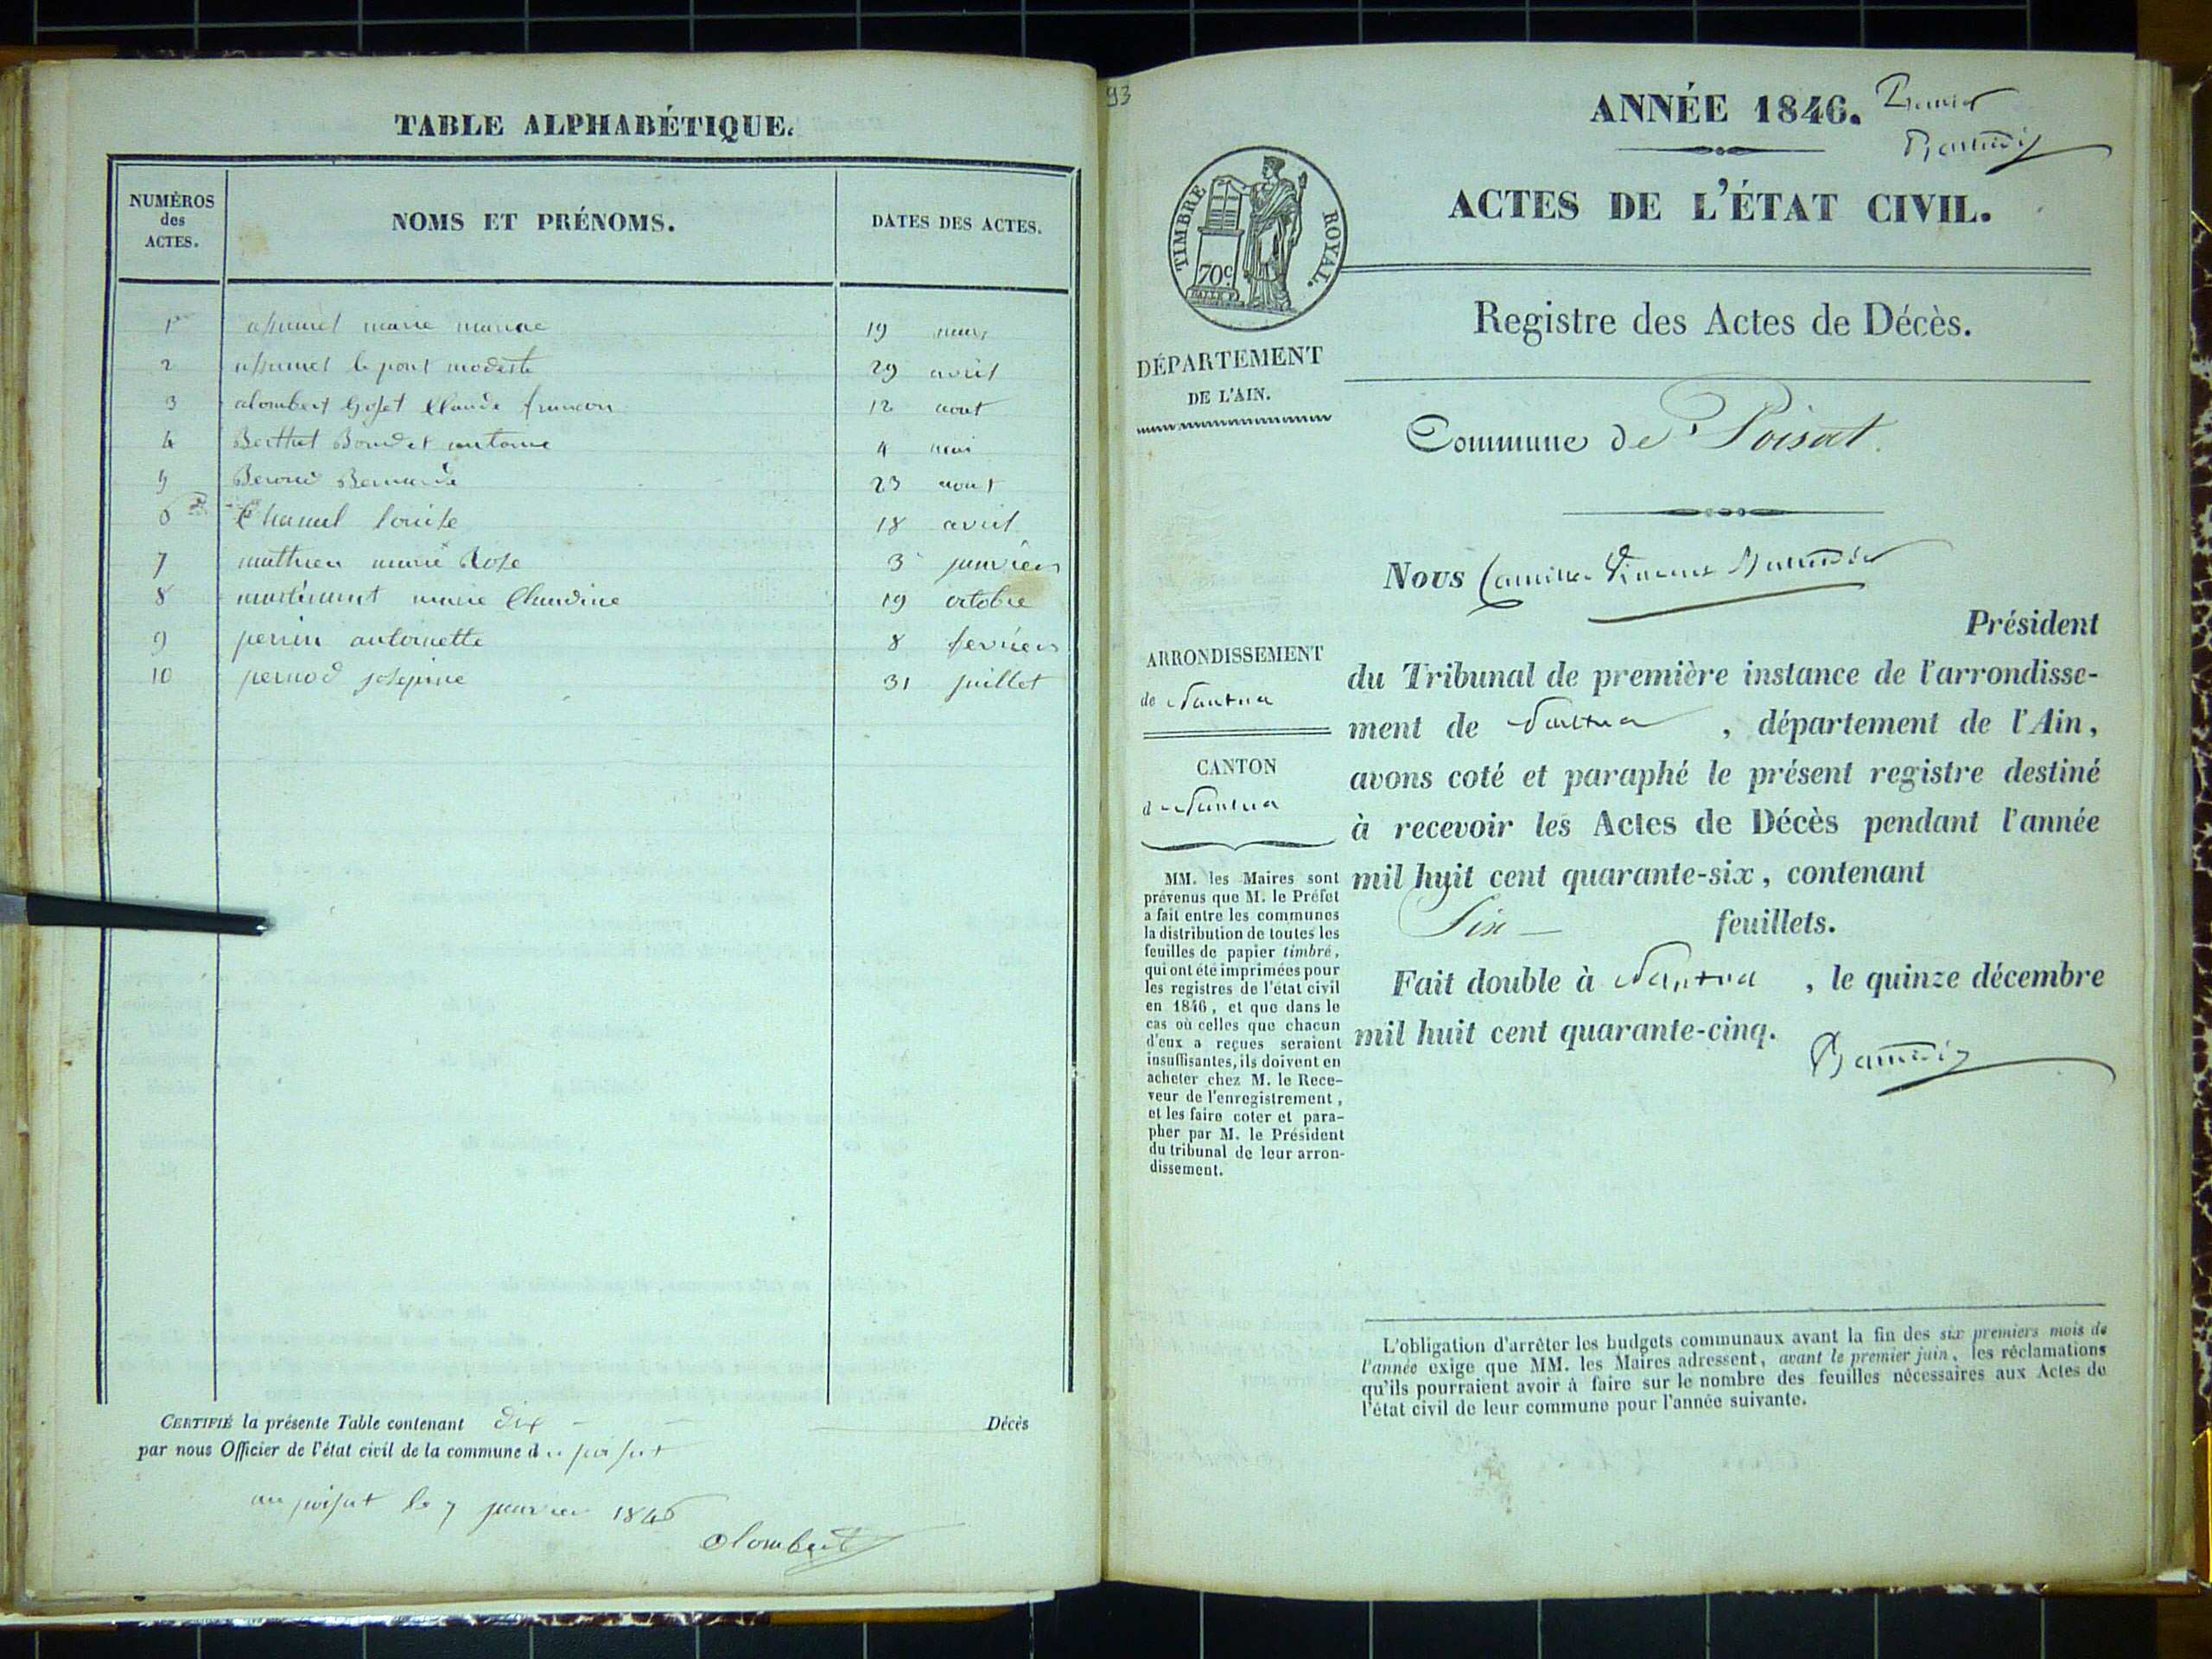 TABLE ALPHABÉTIQUE.
NUMÉROS
des
ACTES.
NOMS ET PRÉNOMS.
DATES DES ACTES.
1er marie 19 mars
2 le pont modeste 29 avril
3 alombert Gojet Claude 12 aout
4 Berthet antoine 4 mai
5 23 aout
6 Chanel louise 18 avril
7 mathieu marie Rose 3 janviers
8 marie Claudine 19 octobre
9 perrin antoinette 8 fevriers
10 pernod josepine 31 juillet
CERTIFIÉ la présente Table contenant dix Décès
par nous Officier de l'état civil de la commune du poisat
au poisat le 7 janvier 1846
alombert
93
ANNÉE 1846.
ACTES DE L'ÉTAT CIVIL.
TIMBRE ROYAL.
70c
Registre des Actes de Décès.
DÉPARTEMENT
DE L'AIN.
Commune de Poisat.
Nous
Président
ARRONDISSEMENT
de Nantua
CANTON
de Nantua
MM. les Maires sont
prévenus que M. le Préfet
a fait entre les communes
la distribution de toutes les
feuilles de papier timbré,
qui ont été imprimées pour
les registres de l'état civil
en 1846, et que dans le
cas où celles que chacun
d'eux a reçues seraient
insuffisantes, ils doivent en
acheter chez M. le Rece-
veur de l'enregistrement,
et les faire coter et para-
pher par M. le Président
du tribunal de leur arron-
dissement.
du Tribunal de première instance de l'arrondisse-
ment de Nantua, département de l'Ain,
avons coté et paraphé le présent registre destiné
à recevoir les Actes de Décès pendant l'année
mil huit cent quarante-six, contenant
Six feuillets.
Fait double à Nantua, le quinze décembre
mil huit cent quarante-cinq.
L'obligation d'arrêter les budgets communaux avant la fin des six premiers mois de
l'année exige que MM. les Maires adressent, avant le premier juin, les réclamations
qu'ils pourraient avoir à faire sur le nombre des feuilles nécessaires aux Actes de
l'état civil de leur commune pour l'année suivante.